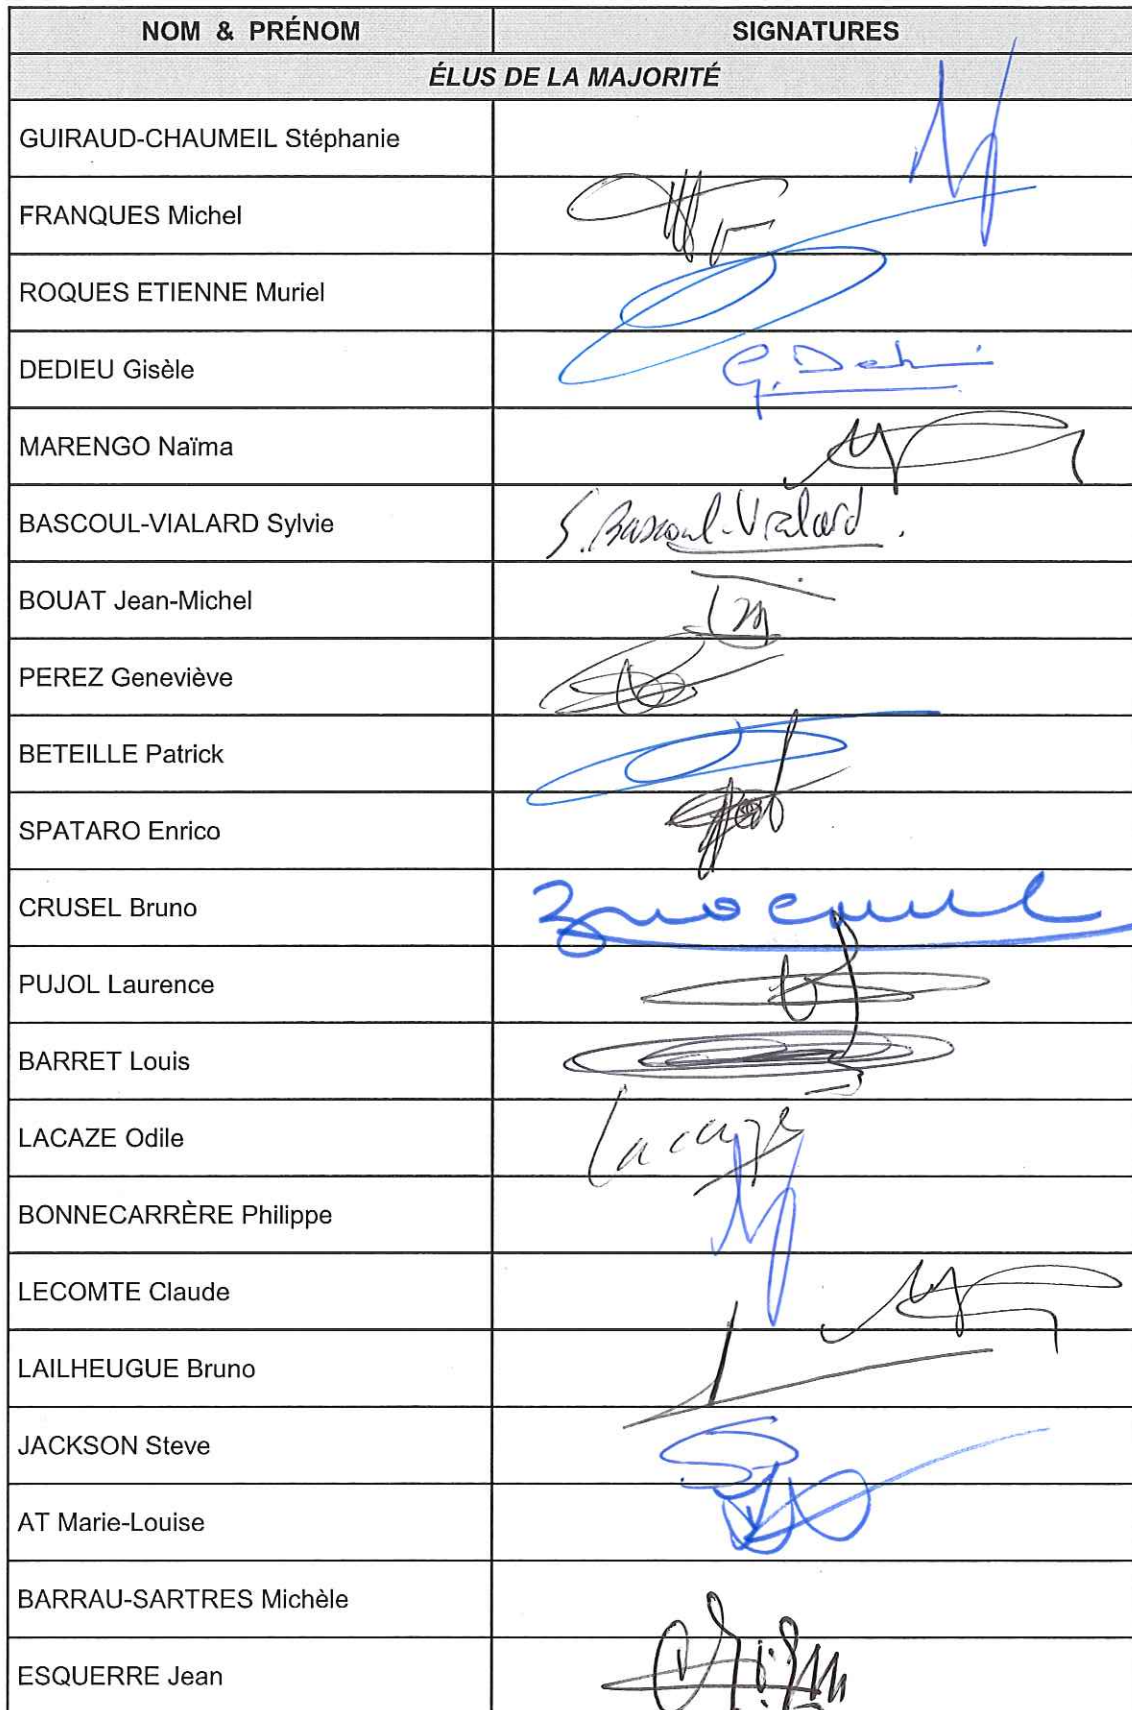 NOM & PRÉNOM SIGNATURES
ÉLUS DE LA MAJORITÉ
GUIRAUD-CHAUMEIL Stéphanie
FRANQUES Michel
ROQUES ETIENNE Muriel
DEDIEU Gisèle
MARENGO Naïma
BASCOUL-VIALARD Sylvie S. Bascoul-Vialard.
BOUAT Jean-Michel
PEREZ Geneviève
BETEILLE Patrick
SPATARO Enrico
CRUSEL Bruno
PUJOL Laurence
BARRET Louis
LACAZE Odile Lacaze
BONNECARRÈRE Philippe
LECOMTE Claude
LAILHEUGUE Bruno
JACKSON Steve
AT Marie-Louise
BARRAU-SARTRES Michèle
ESQUERRE Jean